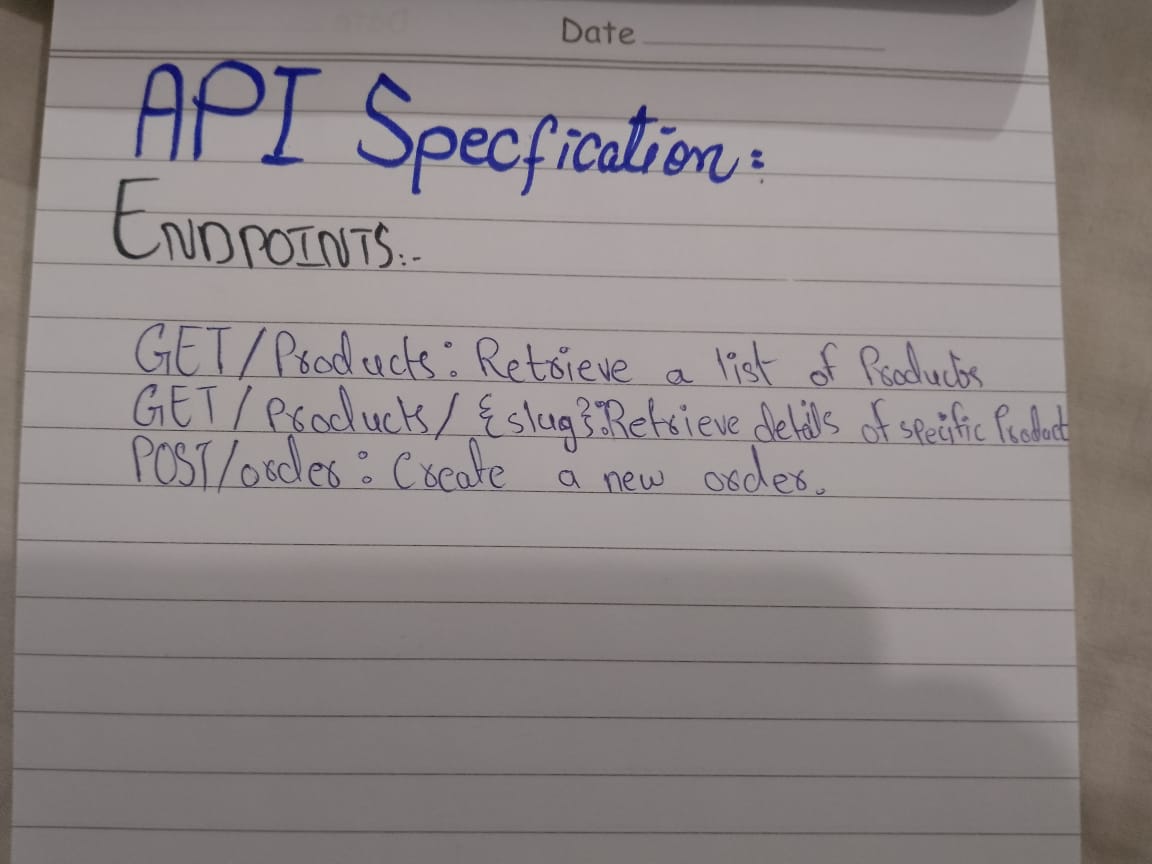 Date
API Specfication:
ENDPOINTS:-
GET/Products: Retrieve a list of Products
GET/Products/{slug}:Retrieve details of specific Product
POST/order: Create a new order.